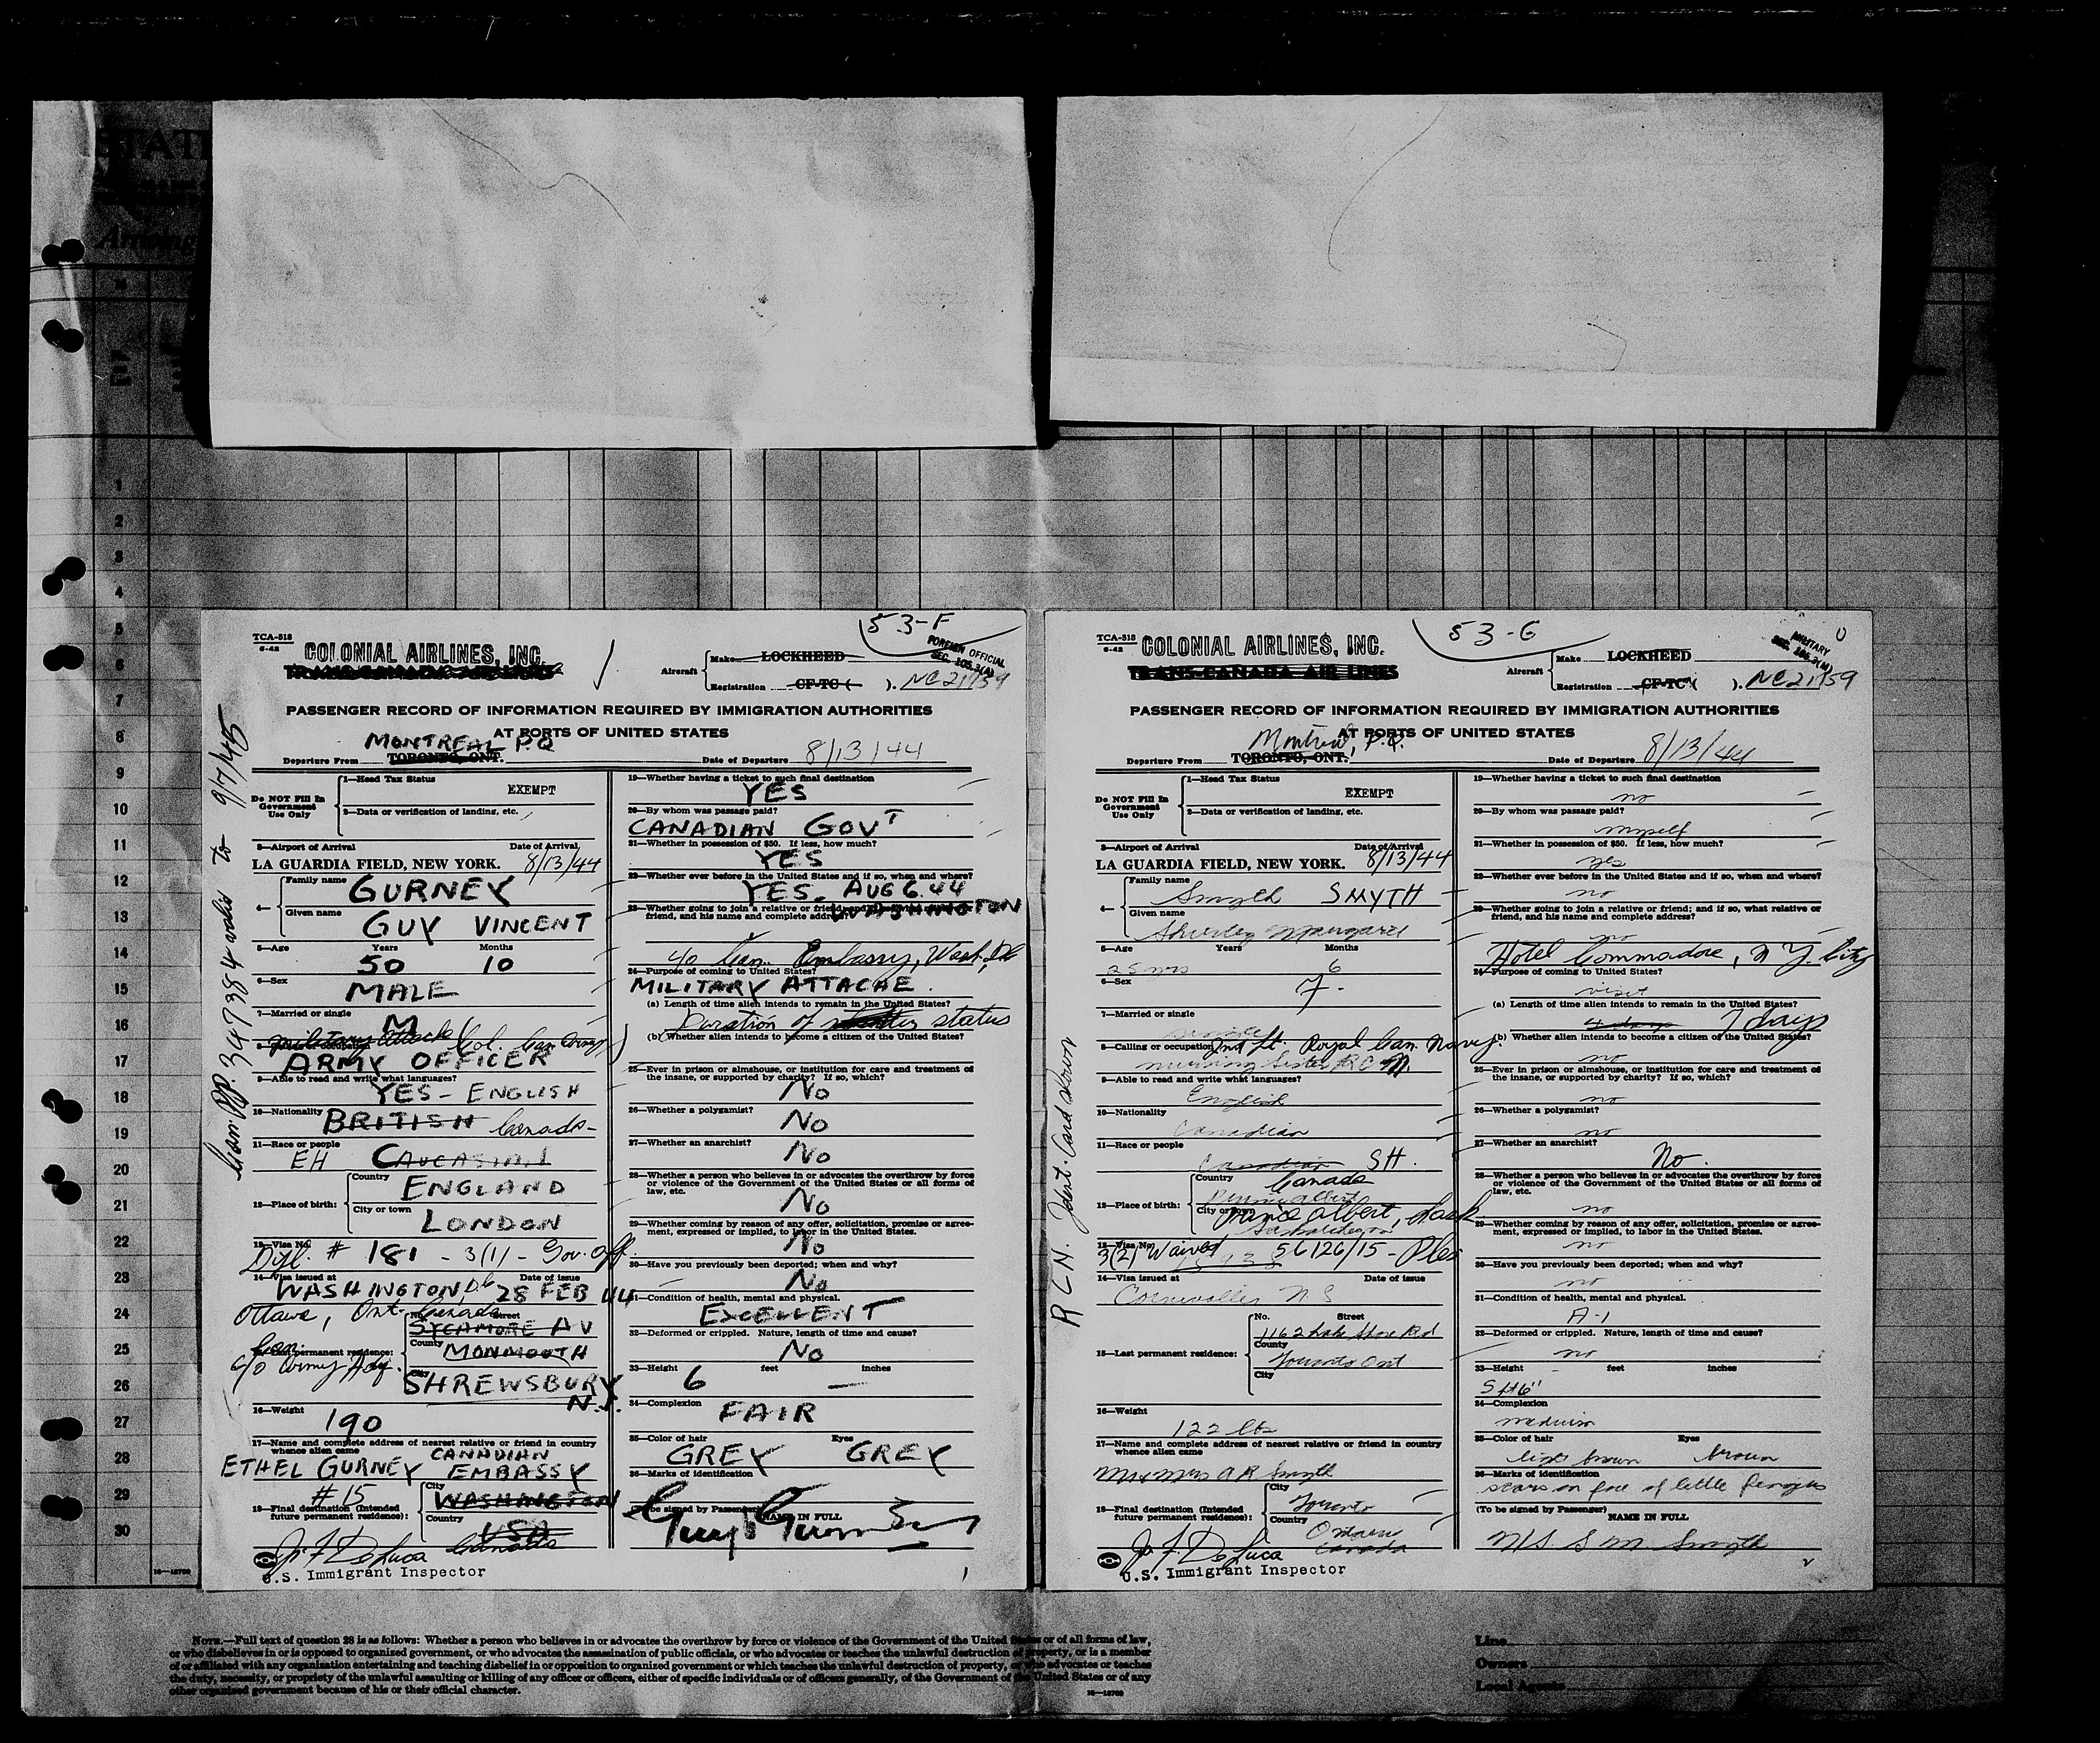 STATE
Among
1
2
3
4
5
6
7
8
9
10
11
12
13
14
15
16
17
18
19
20
21
22
23
24
25
26
27
28
29
30
53-F
TCA-518
6-42
COLONIAL AIRLINES, INC.
TRANS-CANADA AIR LINES
FOREIGN OFFICIAL
SEC. 105.3(A)
Aircraft
Make LOCKHEED
Registration CF-TC ( ). NC21759
PASSENGER RECORD OF INFORMATION REQUIRED BY IMMIGRATION AUTHORITIES
AT PORTS OF UNITED STATES
MONTREAL P.Q
Departure From TORONTO, ONT. Date of Departure 8/13/44
Can. PP. 347384 valid to 9/7/45
Do NOT Fill In Government Use Only
1—Head Tax Status
EXEMPT
2—Data or verification of landing, etc.
3—Airport of Arrival Date of Arrival
LA GUARDIA FIELD, NEW YORK. 8/13/44
4— Family name GURNEY
Given name GUY VINCENT
5—Age Years Months
50 10
6—Sex
MALE
7—Married or single
M
military attaché Col. Can. Army
8—Calling or occupation
ARMY OFFICER
9—Able to read and write what languages?
YES - ENGLISH
10—Nationality
BRITISH Canada-
11—Race or people
EH CAUCASIAN
12—Place of birth:
Country
ENGLAND
City or town
LONDON
13—Visa No.
Dipl. # 181 - 3(1) - Gov. off.
14—Visa issued at Date of issue
WASHINGTON, DC 28 FEB 44
Ottawa, Ont. Canada
No. Street
SYCAMORE AV
15—Last permanent residence:
c/o Can. Army Hdq.
County
MONMOUTH
City
SHREWSBURY
N.J.
16—Weight
190
17—Name and complete address of nearest relative or friend in country whence alien came
ETHEL GURNEY CANADIAN EMBASSY
# 15
18—Final destination (Intended future permanent residence):
City
WASHINGTON
Country
USA
Canada
J. F. DeLuca
U.S. Immigrant Inspector
19—Whether having a ticket to such final destination
YES
20—By whom was passage paid?
CANADIAN GOVT
21—Whether in possession of $50. If less, how much?
YES
22—Whether ever before in the United States and if so, when and where?
YES. AUG 6.44
WASHINGTON
23—Whether going to join a relative or friend; and if so, what relative or friend, and his name and complete address?
c/o Can. Embassy, Wash. DC
24—Purpose of coming to United States?
MILITARY ATTACHE.
(a) Length of time alien intends to remain in the United States?
Duration of status
(b) Whether alien intends to become a citizen of the United States?
25—Ever in prison or almshouse, or institution for care and treatment of the insane, or supported by charity? If so, which?
No
26—Whether a polygamist?
No
27—Whether an anarchist?
No
28—Whether a person who believes in or advocates the overthrow by force or violence of the Government of the United States or all forms of law, etc.
No
29—Whether coming by reason of any offer, solicitation, promise or agreement, expressed or implied, to labor in the United States?
No
30—Have you previously been deported; when and why?
No
31—Condition of health, mental and physical.
EXCELLENT
32—Deformed or crippled. Nature, length of time and cause?
No
33—Height feet inches
6 —
34—Complexion
FAIR
35—Color of hair Eyes
GREY GREY
36—Marks of identification
(To be signed by Passenger) NAME IN FULL
Guy Gurney
53-G
TCA-518
6-42
COLONIAL AIRLINES, INC.
TRANS-CANADA AIR LINES
MILITARY
SEC. 105.3(M)
Aircraft
Make LOCKHEED
Registration CF-TC ( ). NC21759
PASSENGER RECORD OF INFORMATION REQUIRED BY IMMIGRATION AUTHORITIES
AT PORTS OF UNITED STATES
Montreal, P.Q.
Departure From TORONTO, ONT. Date of Departure 8/13/44
RCN. Ident. Card shown
Do NOT Fill In Government Use Only
1—Head Tax Status
EXEMPT
2—Data or verification of landing, etc.
3—Airport of Arrival Date of Arrival
LA GUARDIA FIELD, NEW YORK. 8/13/44
4— Family name Smyth SMYTH
Given name Shirley Margaret
5—Age Years Months
25 yrs 6
6—Sex
F.
7—Married or single
single
8—Calling or occupation 2nd Lt. Royal Can. Navy.
nursing sister RCN.
9—Able to read and write what languages?
English
10—Nationality
Canadian
11—Race or people
Canadian SH.
12—Place of birth:
Country
Canada
Prince Albert
City or town
Prince Albert, Sask
Saskatchewan
13—Visa No.
3(2) Waived 56126/15 -
14—Visa issued at Date of issue
Cornwallis N S
15—Last permanent residence:
No. Street
1162 Lake Shore Rd
County
Toronto Ont
City
16—Weight
122 lbs
17—Name and complete address of nearest relative or friend in country whence alien came
Mr & Mrs A R Smyth
18—Final destination (Intended future permanent residence):
City
Toronto
Country
Ontario
Canada
J. F. DeLuca
U.S. Immigrant Inspector
19—Whether having a ticket to such final destination
no
20—By whom was passage paid?
myself
21—Whether in possession of $50. If less, how much?
yes
22—Whether ever before in the United States and if so, when and where?
no
23—Whether going to join a relative or friend; and if so, what relative or friend, and his name and complete address?
no
Hotel Commodore, N Y. City
24—Purpose of coming to United States?
visit
(a) Length of time alien intends to remain in the United States?
4 days 7 days
(b) Whether alien intends to become a citizen of the United States?
no
25—Ever in prison or almshouse, or institution for care and treatment of the insane, or supported by charity? If so, which?
no
26—Whether a polygamist?
no
27—Whether an anarchist?
No.
28—Whether a person who believes in or advocates the overthrow by force or violence of the Government of the United States or all forms of law, etc.
no
29—Whether coming by reason of any offer, solicitation, promise or agreement, expressed or implied, to labor in the United States?
no
30—Have you previously been deported; when and why?
no
31—Condition of health, mental and physical.
A-1
32—Deformed or crippled. Nature, length of time and cause?
no
33—Height feet inches
5 ft 6"
34—Complexion
medium
35—Color of hair Eyes
light brown brown
36—Marks of identification
scars on four of little fingers
(To be signed by Passenger)
NAME IN FULL
N/S S M Smyth
16—12709
NOTE.—Full text of question 28 is as follows: Whether a person who believes in or advocates the overthrow by force or violence of the Government of the United States or of all forms of law,
or who disbelieves in or is opposed to organized government, or who advocates the assassination of public officials, or who advocates or teaches the unlawful destruction of property, or is a member
of or affiliated with any organization entertaining and teaching disbelief in or opposition to organized government or which teaches the unlawful destruction of property, or who advocates or teaches
the duty, necessity, or propriety of the unlawful assaulting or killing of any officer or officers, either of specific individuals or of officers generally, of the Government of the United States or of any
other organized government because of his or their official character.
16—12709
Line
Owners
Local Agents